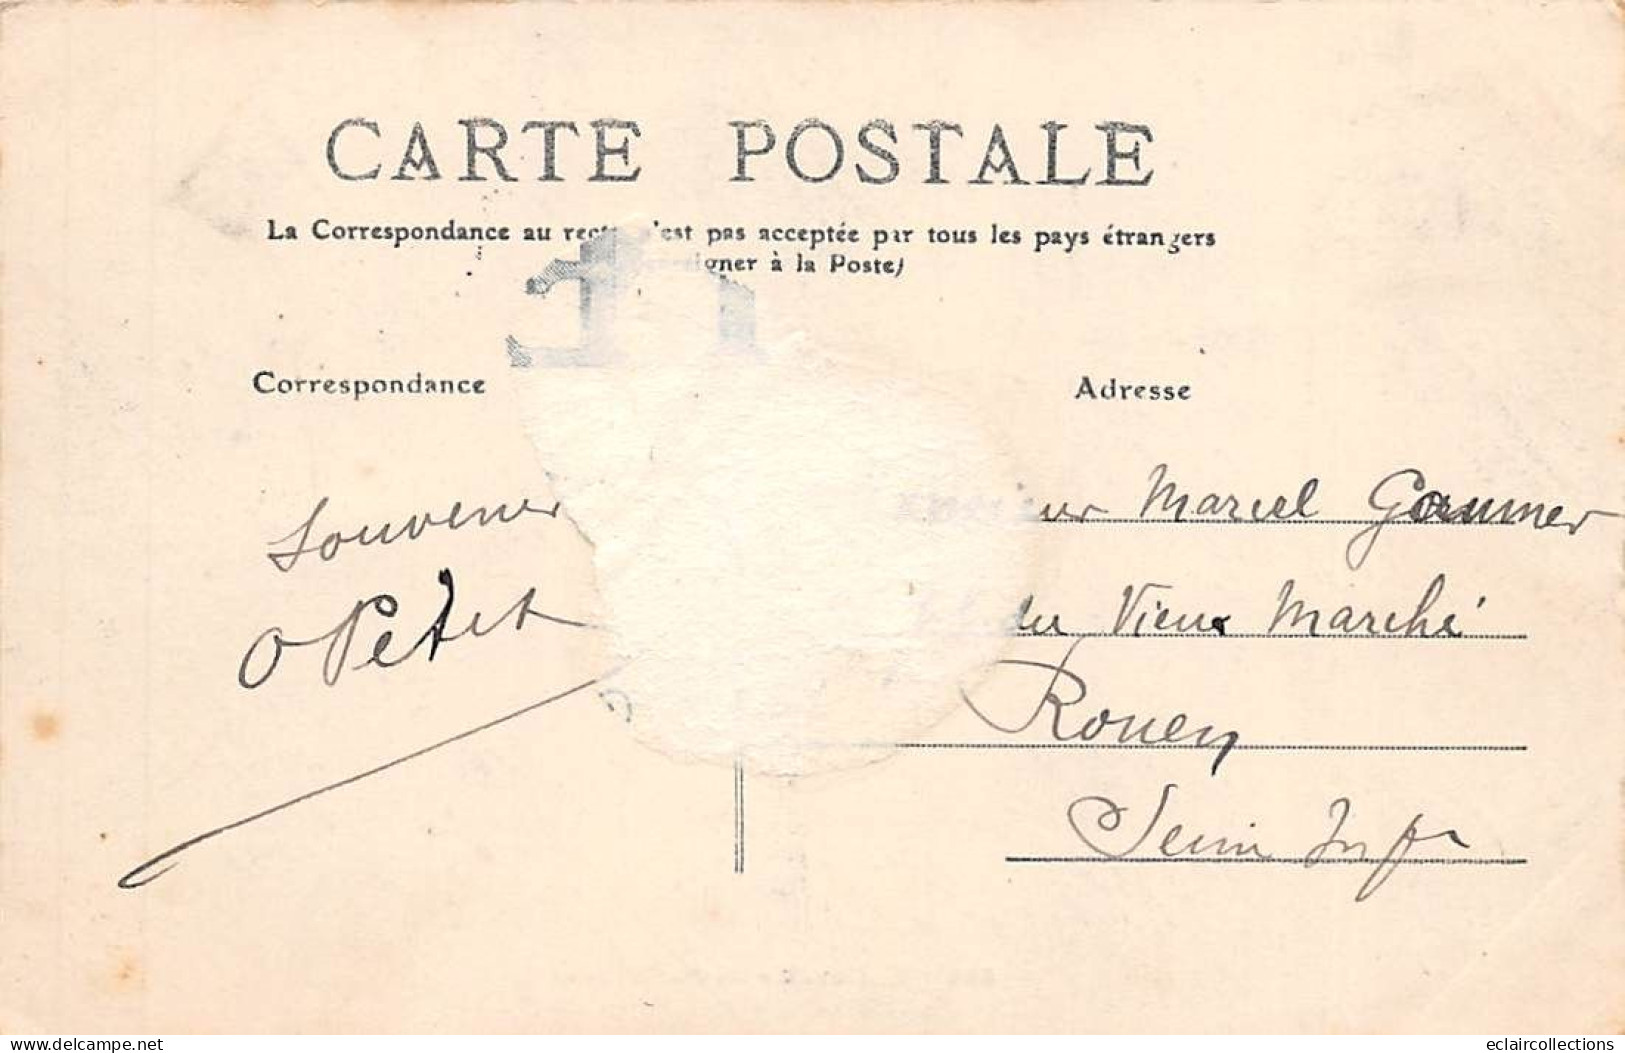 CARTE POSTALE
La Correspondance au recto n'est pas acceptée par tous les pays étrangers
igner à la Poste)
Correspondance
Adresse
Souvenir
Petit
eur Marcel
du Vieux Marché
Rouen
Seine Infre
delcampe.net
eclaircollections